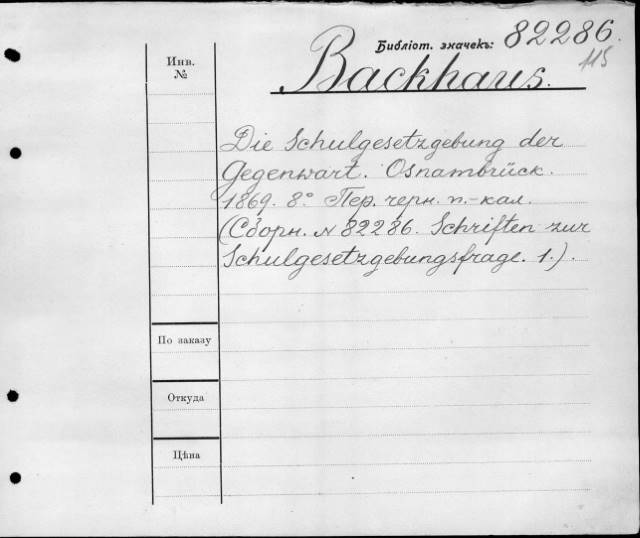 Библіот. значекъ: 82286.
115
Backhaus.
Инв.
№
Die Schulgesetzgebung der
Gegenwart. Osnambrück.
1869. 8° Пер. черн. п.-кал.
(Сборн. № 82286. Schriften zur
Schulgesetzgebungsfrage. 1.).
По заказу
Откуда
Цѣна